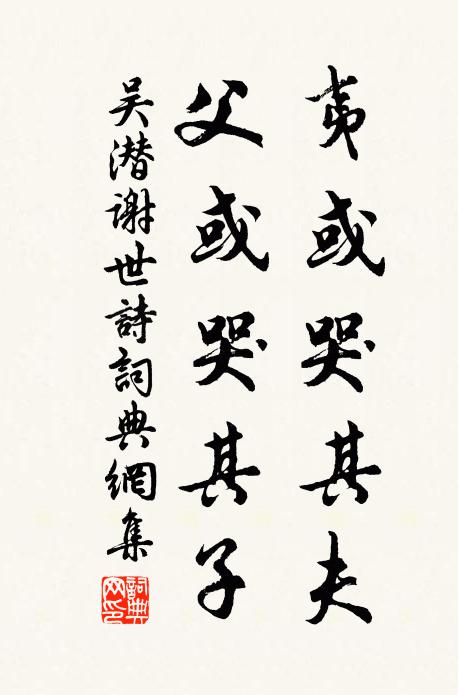 夷或哭其夫
父或哭其子
吴潜谢世詩詞典網集
詞典网印